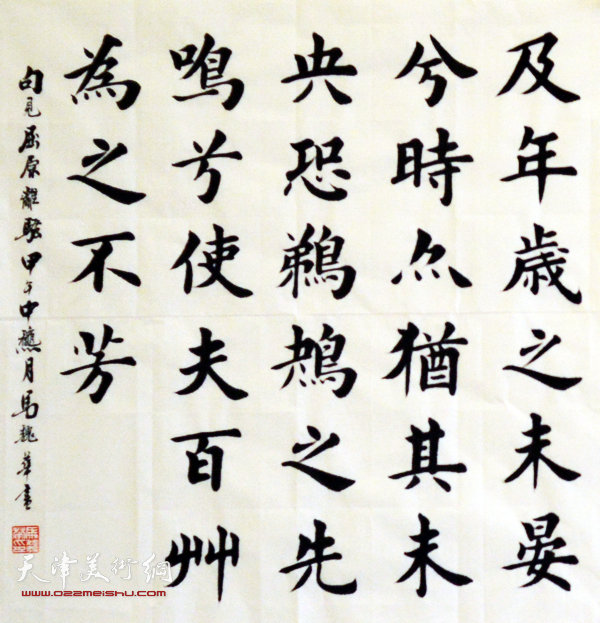 及年歲之未晏
兮時亦猶其未
央恐鵜鴂之先
鳴兮使夫百艸
為之不芳
句見屈原離騷甲午中龝月馬魏華書
天津美術網
www.022meishu.com